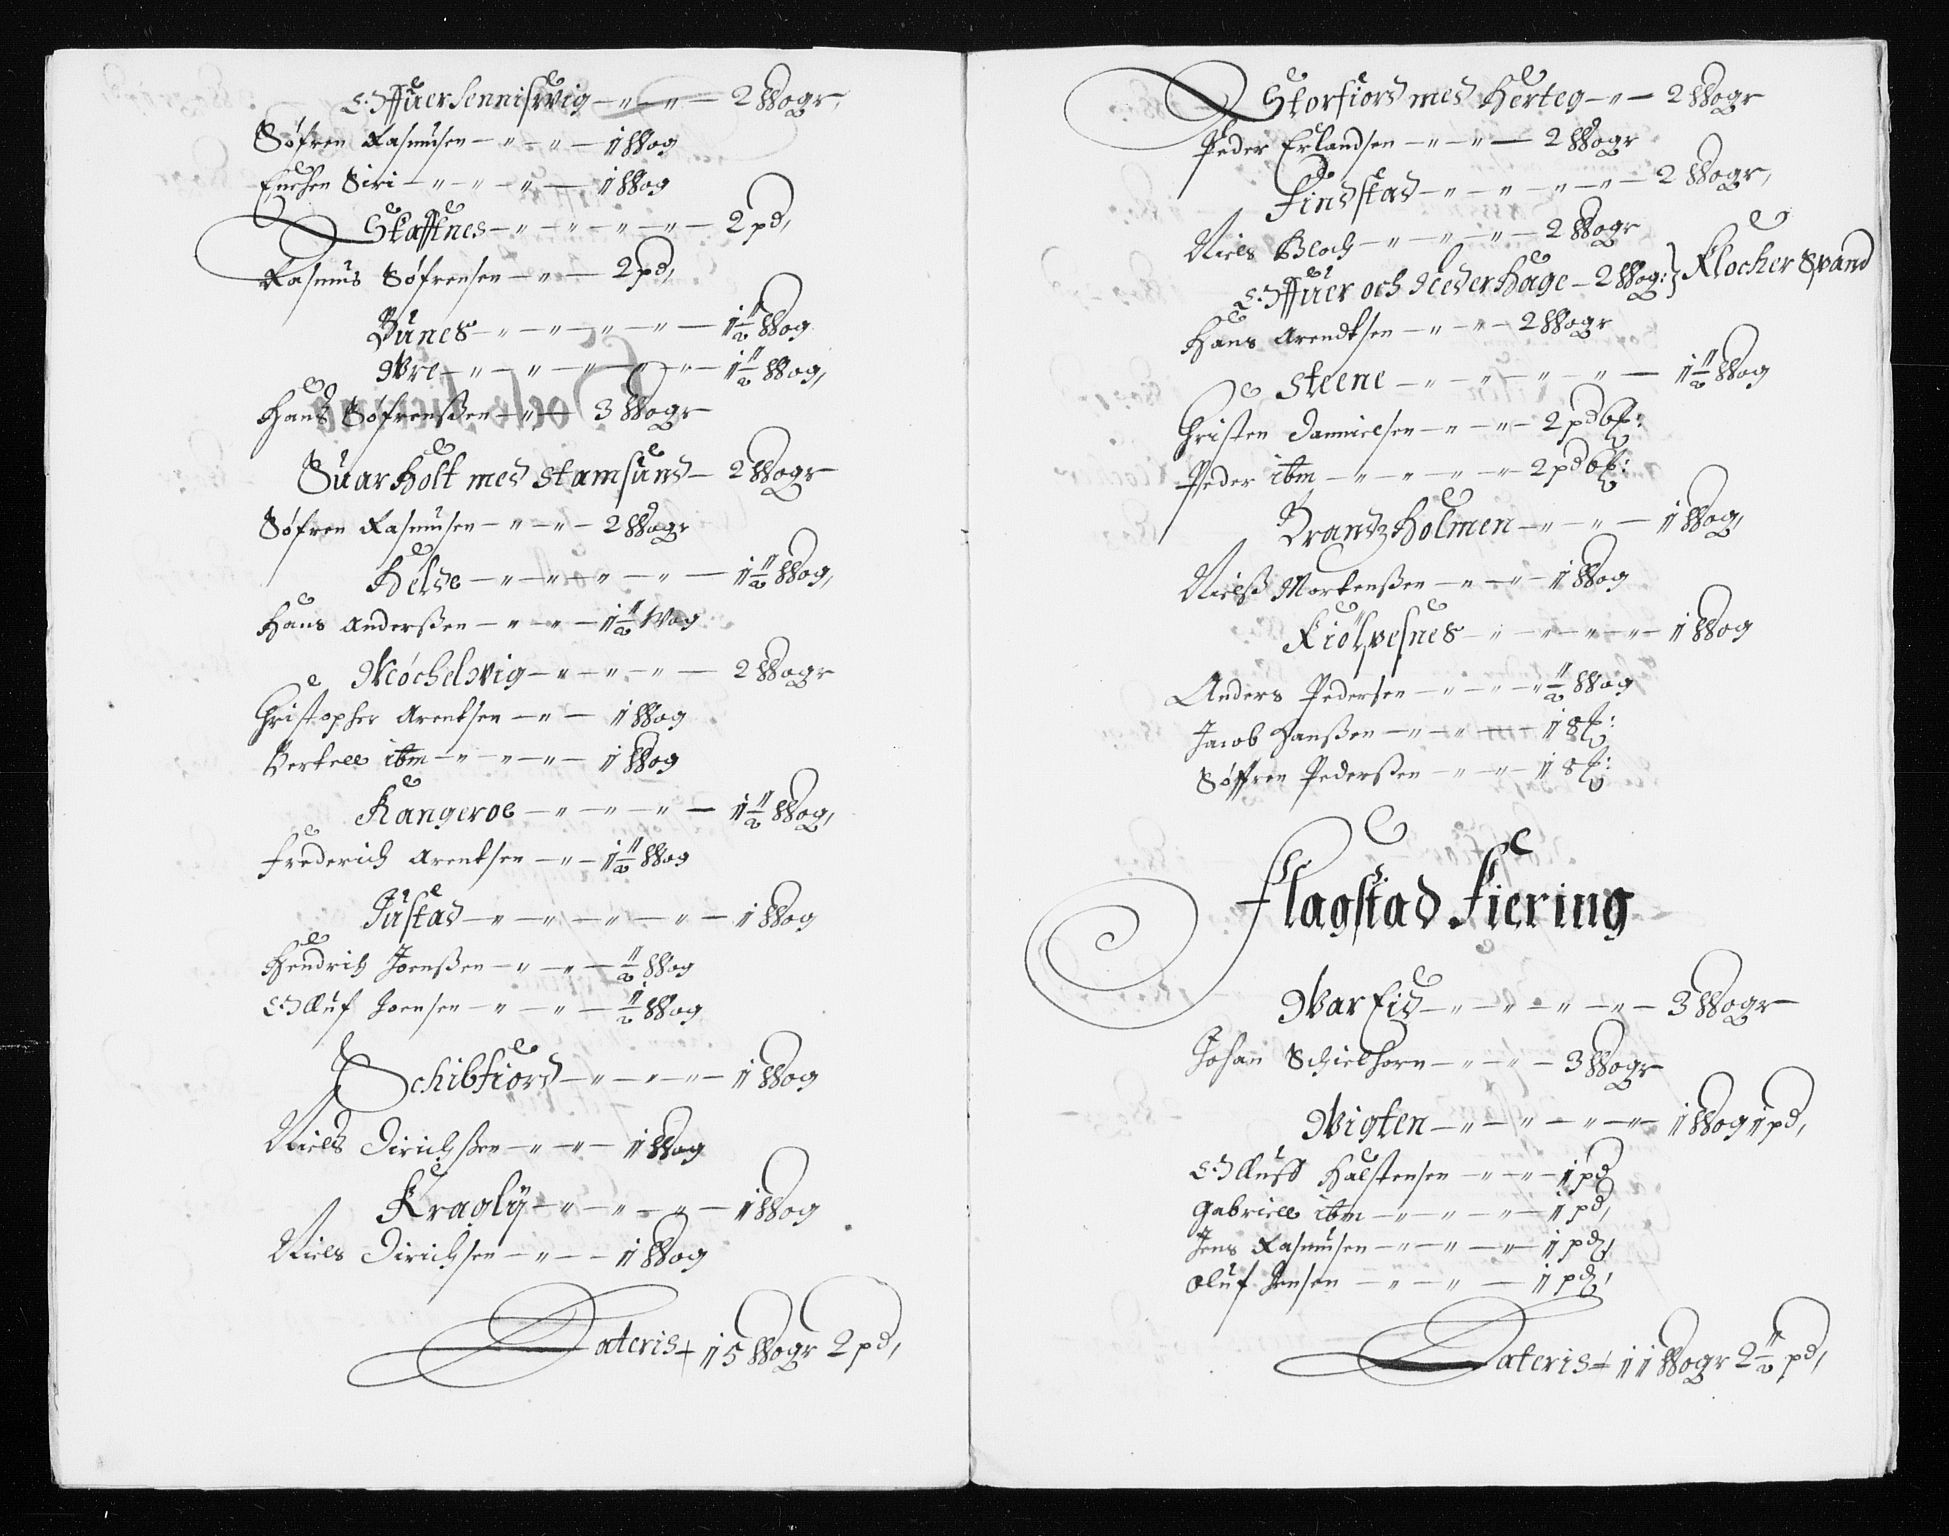 Offuersennisvig – „ – „ – 2 Wogr,
Søfren Rasmusen – „ – „ – 1 Wog
Enchen Siri – „ – „ – „ – 1 Wog
Staffnes – „ – „ – „ – „ – 2 pd,
Rasmus Søfrensen – „ – 2 pd,
Bunes – „ – „ – „ – „ – 1½ Wog
Wre – „ – „ – „ – „ – „ – 1½ Wog,
Hans Søfrenßen – „ – 3 Wogr
Suarholt med Stamsund – 2 Wogr
Søfren Rasmusen – „ – „ – 2 Wogr
Helde – „ – „ – „ – „ – 1½ Wog,
Hans Anderßen – „ – „ – 1½ Wog
Møchelvig – „ – „ – „ – 2 Wogr
Christopher Arentsen – „ – 1 Wog
Bertell ibm – „ – „ – „ – 1 Wog
Kangeroe – „ – „ – „ – 1½ Wog,
Frederich Arentsen – „ – 1½ Wog
Justad – „ – „ – „ – „ – 1 Wog
Hendrich Joenßen – „ – „ – ½ Wog
Olluf Joensen – „ – „ – ½ Wog
Schibfiord – „ – „ – „ – 1 Wog
Niels Dirichßen – „ – „ – 1 Wog
Kragly – „ – „ – „ – 1 Wog
Niels Dirichsen – „ – – 1 Wog
Lateris + 15 Wogr 2 pd,
Storfiord med Herteg – „ – 2 Wogr
Peder Erlandsen – „ – „ – 2 Wogr
Findstad – „ – „ – „ – „ – 2 Wogr,
Niels Bloch – „ – „ – „ – 2 Wogr
Offuer och NederHage – 2 Wog: } Klocher Svand
Hans Arendtsen – „ – „ – 2 Wogr
Steene – „ – „ – „ – „ – 1½ Wog
Christen Dannielsen – „ – „ – 2 pd 6 #:
Peder ibm – „ – „ – „ – „ – 2 pd 6 #:
Brandtzholmen – „ – „ – 1 Wog,
Nielß Mortenßen – „ – „ – 1 Wog
Kiølvesnes – „ – „ – „ – „ – 1 Wog
Anders Pedersen – „ – „ – „ ½ Wog
Jacob Hanßen – „ – „ – – 18 #:
Søffren Pederßen – „ – „ – 18 #:
Flagstad Fiering
Mar Eid – „ – „ – „ – „ – 3 Wogr
Johan Schielhorn – „ – „ – 3 Wogr
Vigten – „ – „ – „ – „ – 1 Wog 1 pd,
Olluff Halstensen – „ – „ – 1 pd
Gabriell ibm – „ – „ – „ – 1 pd,
Jens Rasmusen – „ – „ – „ – 1 pd,
Oluf Jensen – „ – „ – 1 pd,
Lateris + 11 Wogr 2½ pd,